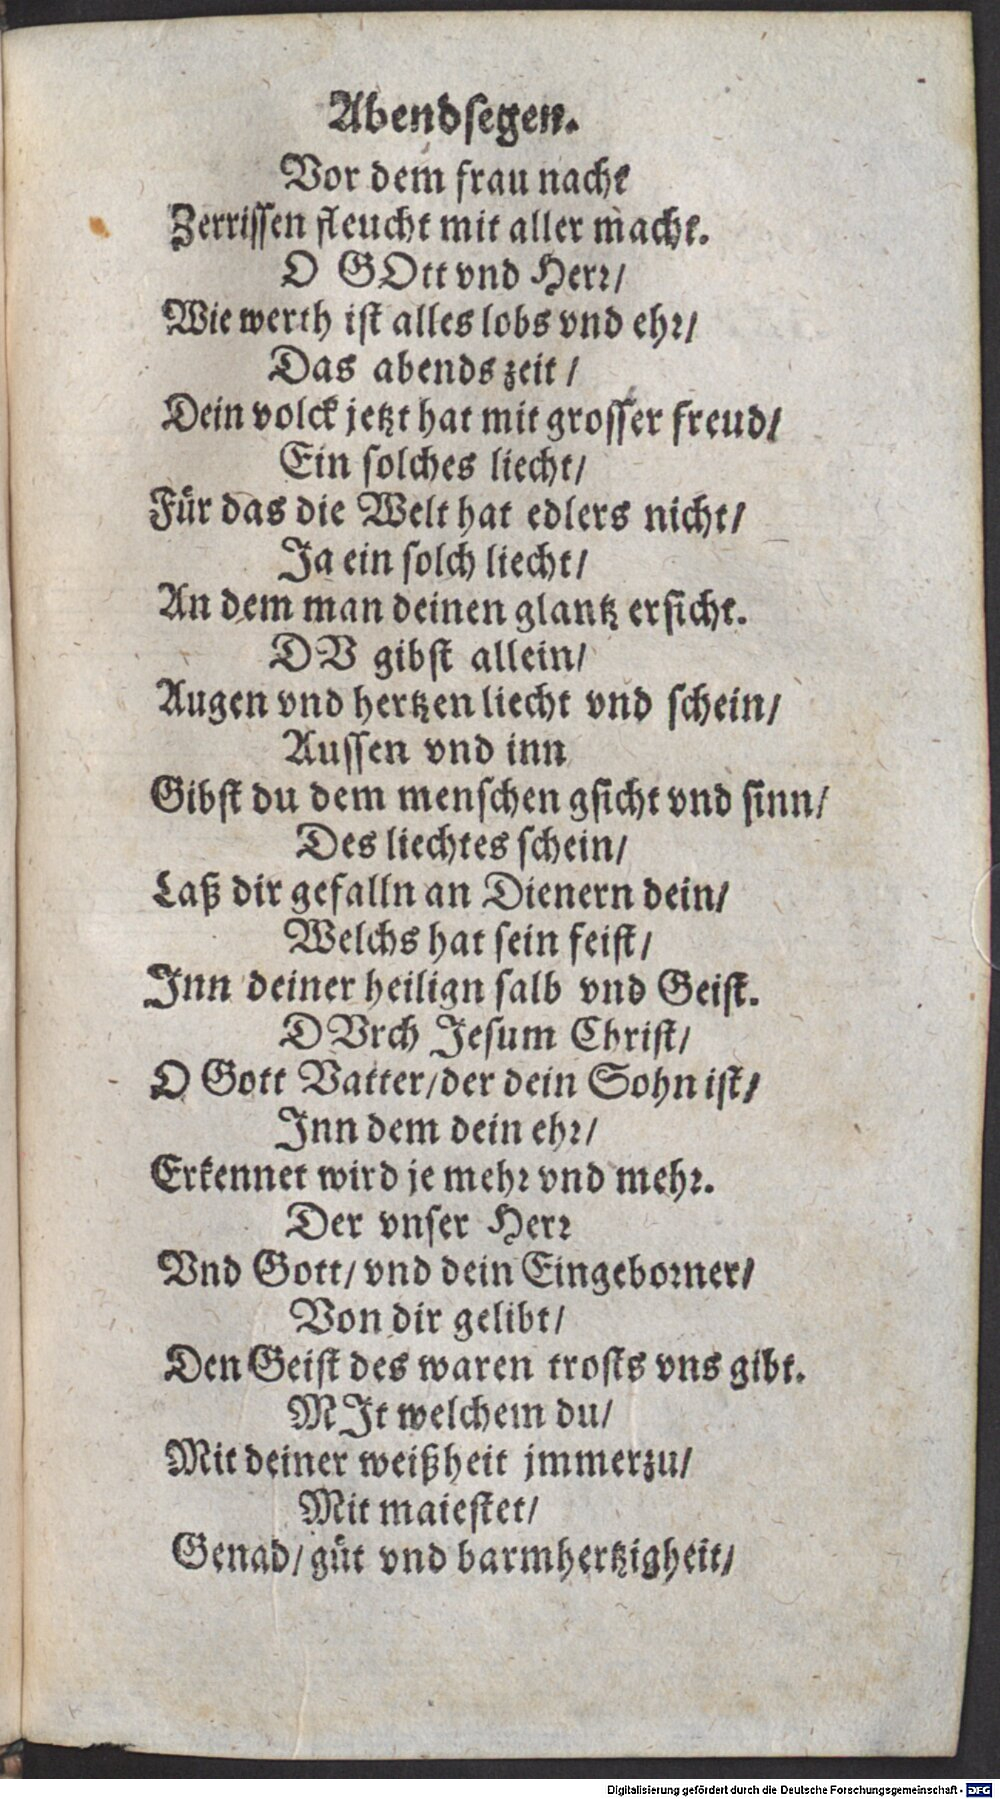 Abendsegen.
Vor dem frau nacht
Zerrissen fleucht mit aller macht.
O GOtt vnd Herr/
Wie werth ist alles lobs vnd ehr/
Das abends zeit /
Dein volck jetzt hat mit grosser freud/
Ein solches liecht/
Für das die Welt hat edlers nicht/
Ja ein solch liecht/
An dem man deinen glantz ersicht.
DV gibst allein/
Augen vnd hertzen liecht vnd schein/
Aussen vnd inn
Gibst du dem menschen gsicht vnd sinn/
Des liechtes schein/
Laß dir gefalln an Dienern dein/
Welchs hat sein feist/
Inn deiner heilign salb vnd Geist.
DVrch Jesum Christ/
O Gott Vatter/der dein Sohn ist/
Inn dem dein ehr/
Erkennet wird je mehr vnd mehr.
Der vnser Herr
Vnd Gott/ vnd dein Eingeborner/
Von dir gelibt/
Den Geist des waren trosts vns gibt.
MIt welchem du/
Mit deiner weißheit jmmerzu/
Mit maiestet/
Genad/ güt vnd barmhertzigheit/
Digitalisierung gefördert durch die Deutsche Forschungsgemeinschaft - DFG